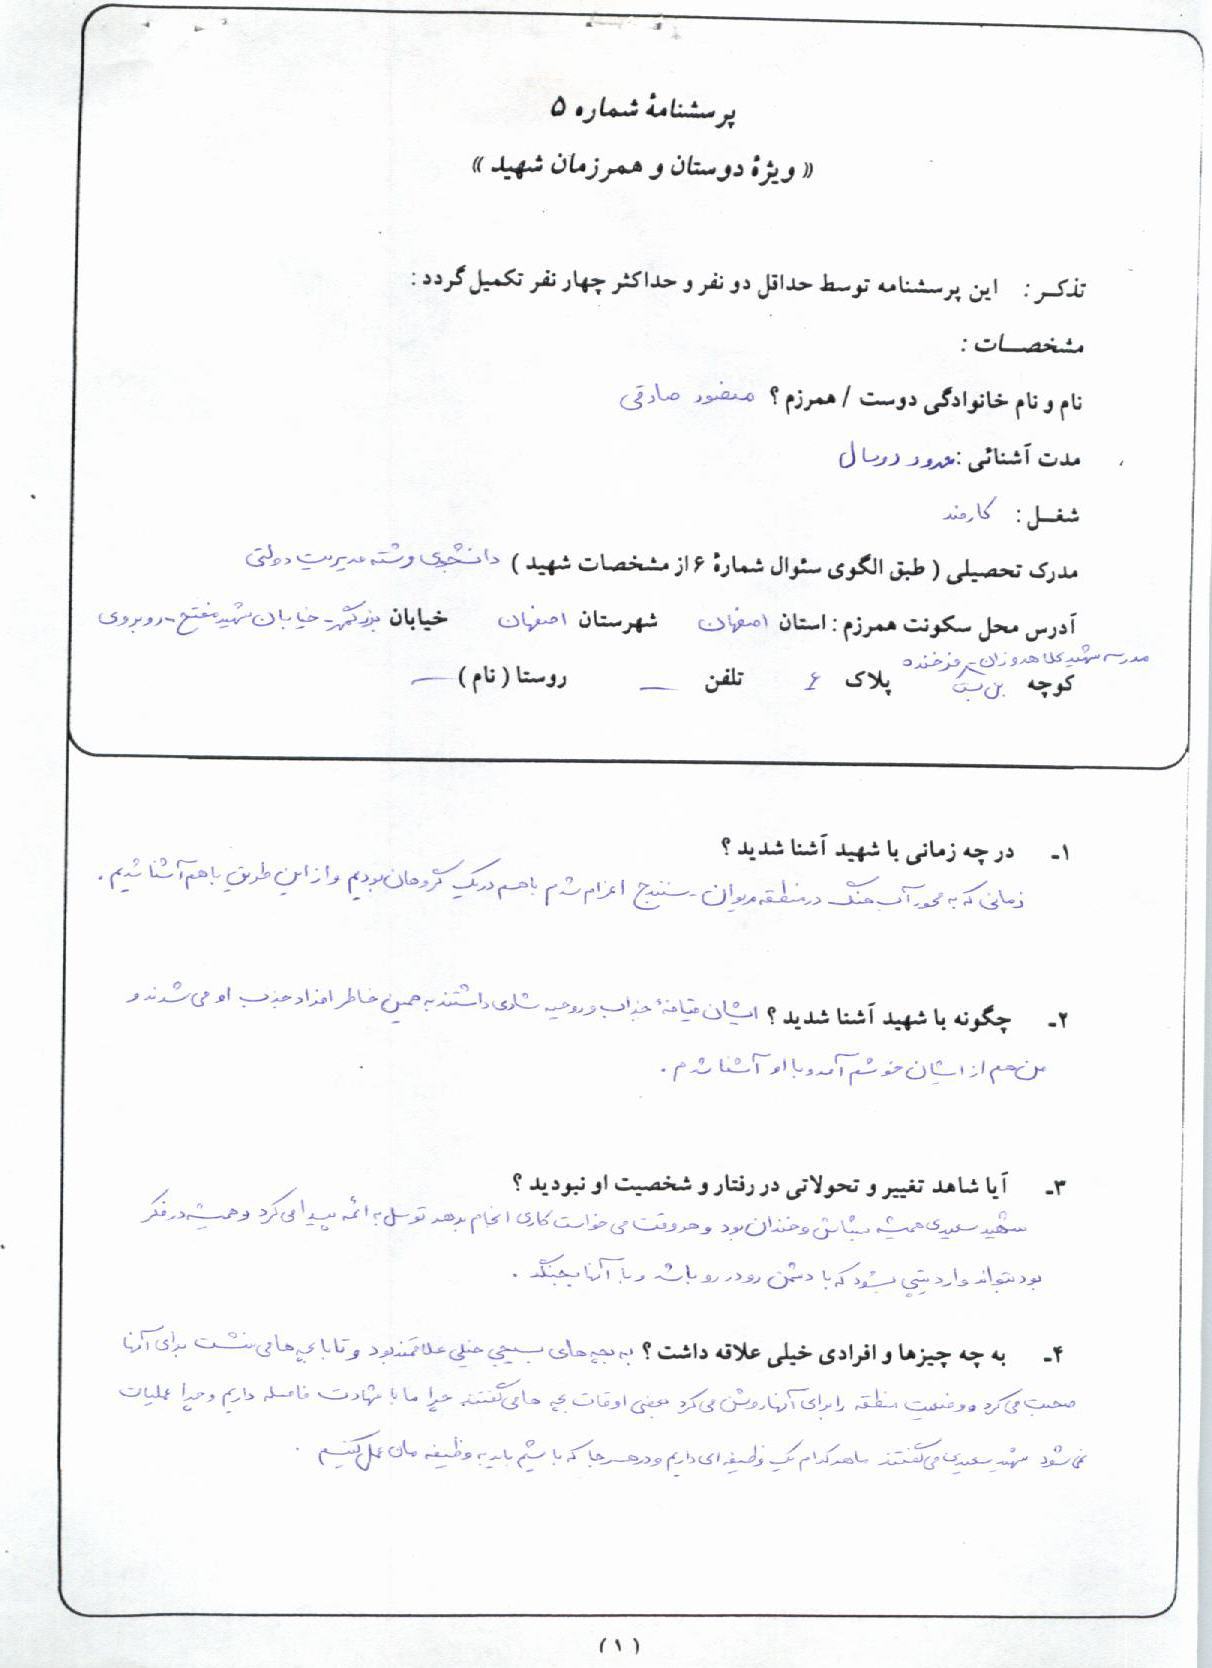 پرسشنامهٔ شماره ۵
« ویژهٔ دوستان و همرزمان شهید »
تذکـر : این پرسشنامه توسط حداقل دو نفر و حداکثر چهار نفر تکمیل گردد :
مشخصــات :
نام و نام خانوادگی دوست / همرزم ؟ منصور صادقی
مدت آشنائی : حدود دو سال
شغـل : کارمند
مدرک تحصیلی ( طبق الگوی سئوال شمارهٔ ۶ از مشخصات شهید ) دانشجوی رشته مدیریت دولتی
آدرس محل سکونت همرزم : استان اصفهان شهرستان اصفهان خیابان بزرگمهر - خیابان شهید مفتح - روبروی
مدرسه شهید فرخنده
کوچه بن بست پلاک ۶ تلفن — روستا ( نام ) —
۱ـ در چه زمانی با شهید آشنا شدید ؟
زمانی که به محور آب جنگ در منطقه مریوان - سنندج اعزام شدم با هم در یک گروهان بودیم و از این طریق با هم آشنا شدیم .
۲ـ چگونه با شهید آشنا شدید ؟ ایشان قیافهٔ جذاب و روحیه شادی داشتند به همین خاطر افراد جذب او می شدند و
من هم از ایشان خوشم آمد و با او آشنا شدم .
۳ـ آیا شاهد تغییر و تحولاتی در رفتار و شخصیت او نبودید ؟
شهید سعیدی همیشه بشاش و خندان بود و هر وقت می خواست کاری انجام بدهد توسل به ائمه پیدا می کرد و همیشه در فکر
بود بتواند وارد تیپی بشود که با دشمن رو در رو باشد و با آنها بجنگد .
۴ـ به چه چیزها و افرادی خیلی علاقه داشت ؟ به بچه های بسیجی خیلی علاقمند بود و تا با بچه ها می نشست برای آنها
صحبت می کرد و وضعیت منطقه را برای آنها روشن می کرد بعضی اوقات بچه ها می گفتند چرا ما با شهادت فاصله داریم و چرا عملیات
نمی شود شهید سعیدی می گفتند ما هر کدام یک وظیفه ای داریم و در هر جا که باشیم باید به وظیفه مان عمل کنیم .
( ۱ )